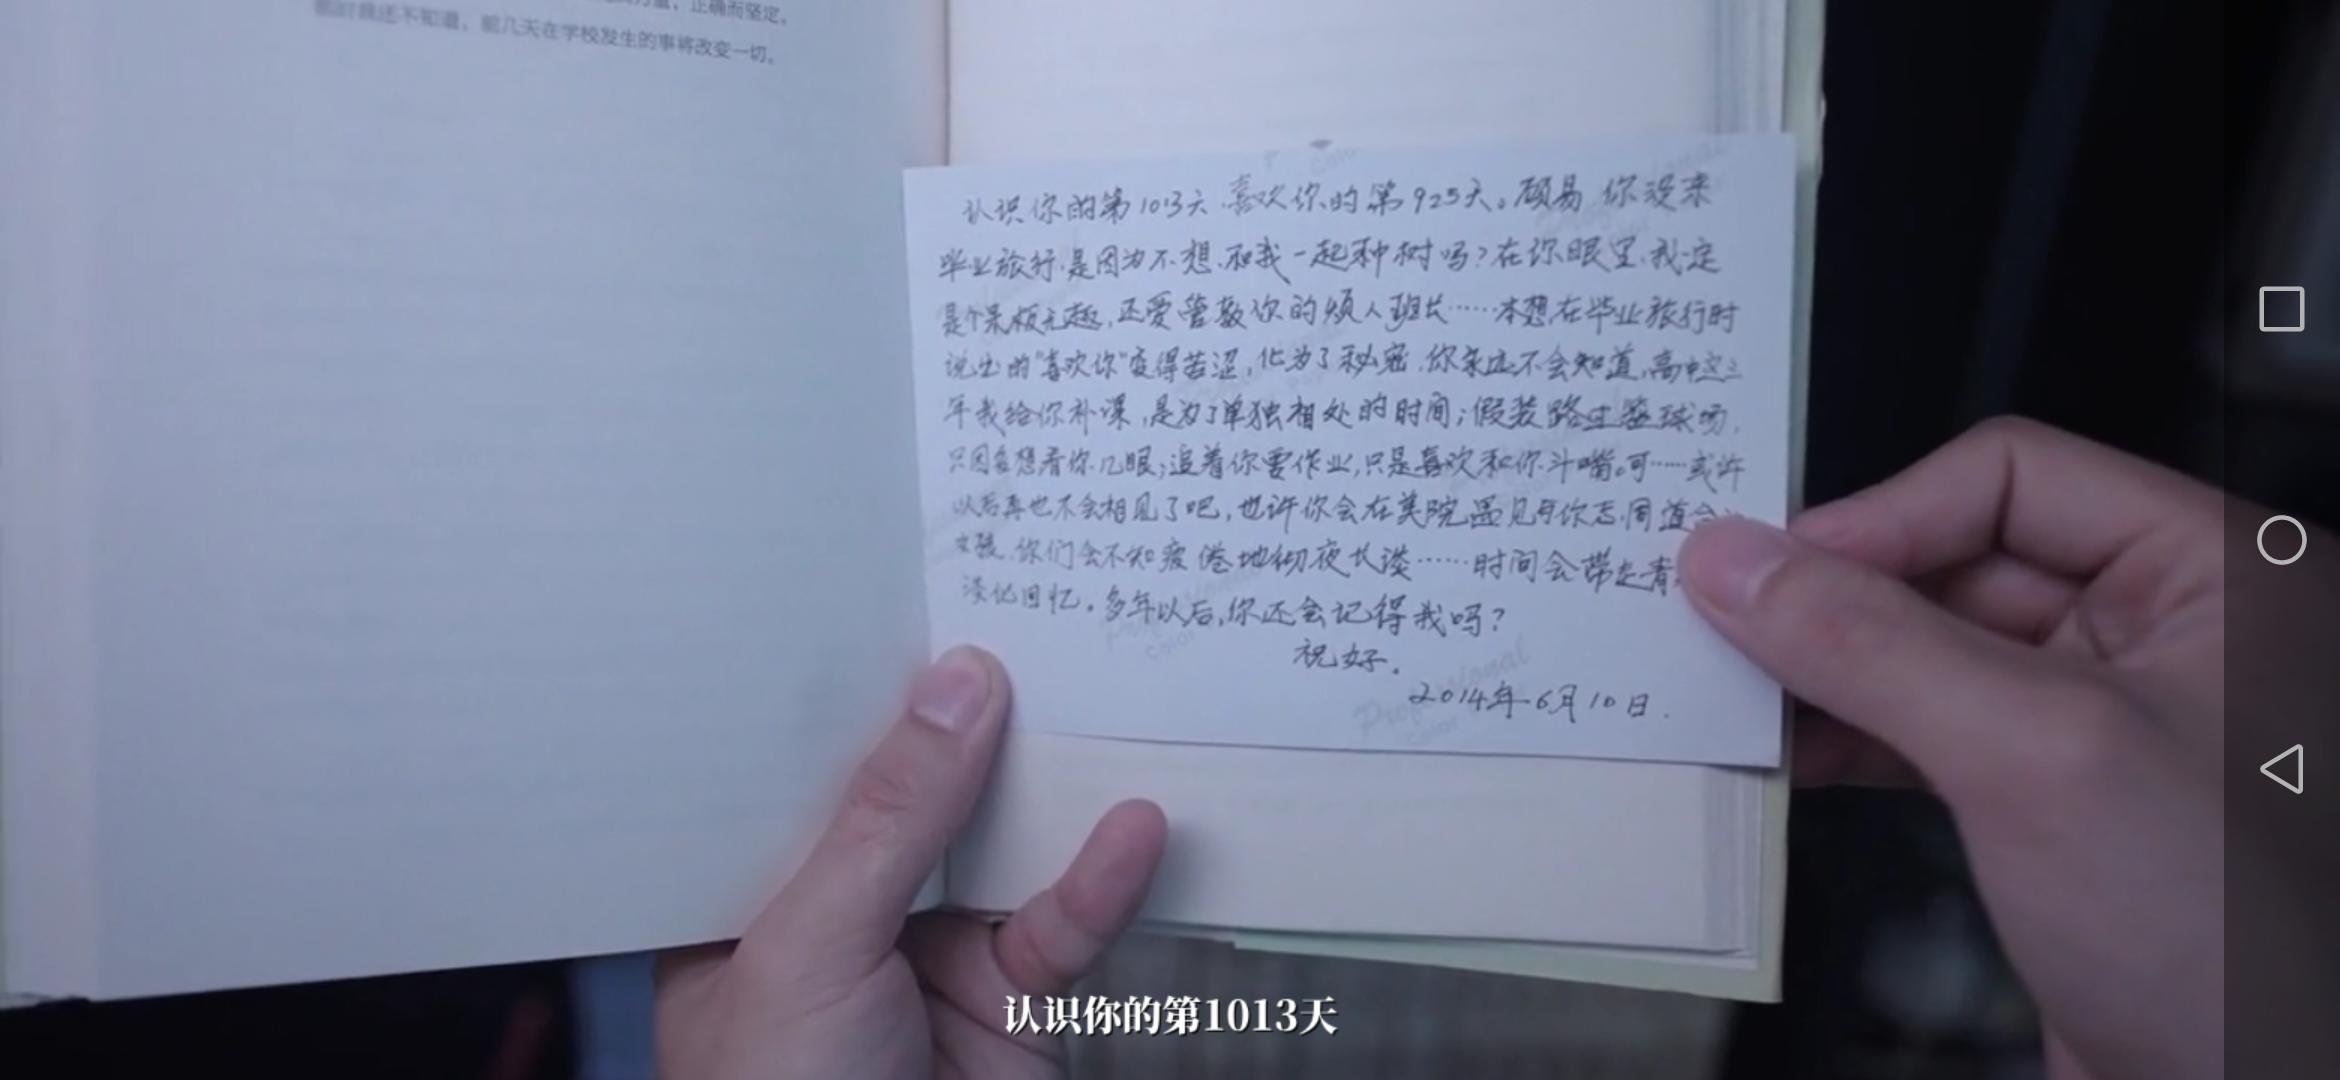 正确而坚定。
那时我还不知道，前几天在学校发生的事将改变一切。
认识你的第1013天，喜欢你的第925天。顾易，你没来
毕业旅行，是因为不想和我一起种树吗？在你眼里，我一定
是个呆板无趣，还爱管教你的烦人班长……本想在毕业旅行时
说出的“喜欢你”变得苦涩，化为了秘密。你永远不会知道，高中这三
年我给你补课，是为了单独相处的时间；假装路过篮球场，
只因多想看你几眼；追着你要作业，只是喜欢和你斗嘴。可……或许
以后再也不会相见了吧，也许你会在美院遇见与你志同道合
女孩，你们会不知疲倦地彻夜长谈……时间会带走青
淡化回忆。多年以后，你还会记得我吗？
祝好。
2014年6月10日.
Professional
Color
认识你的第1013天